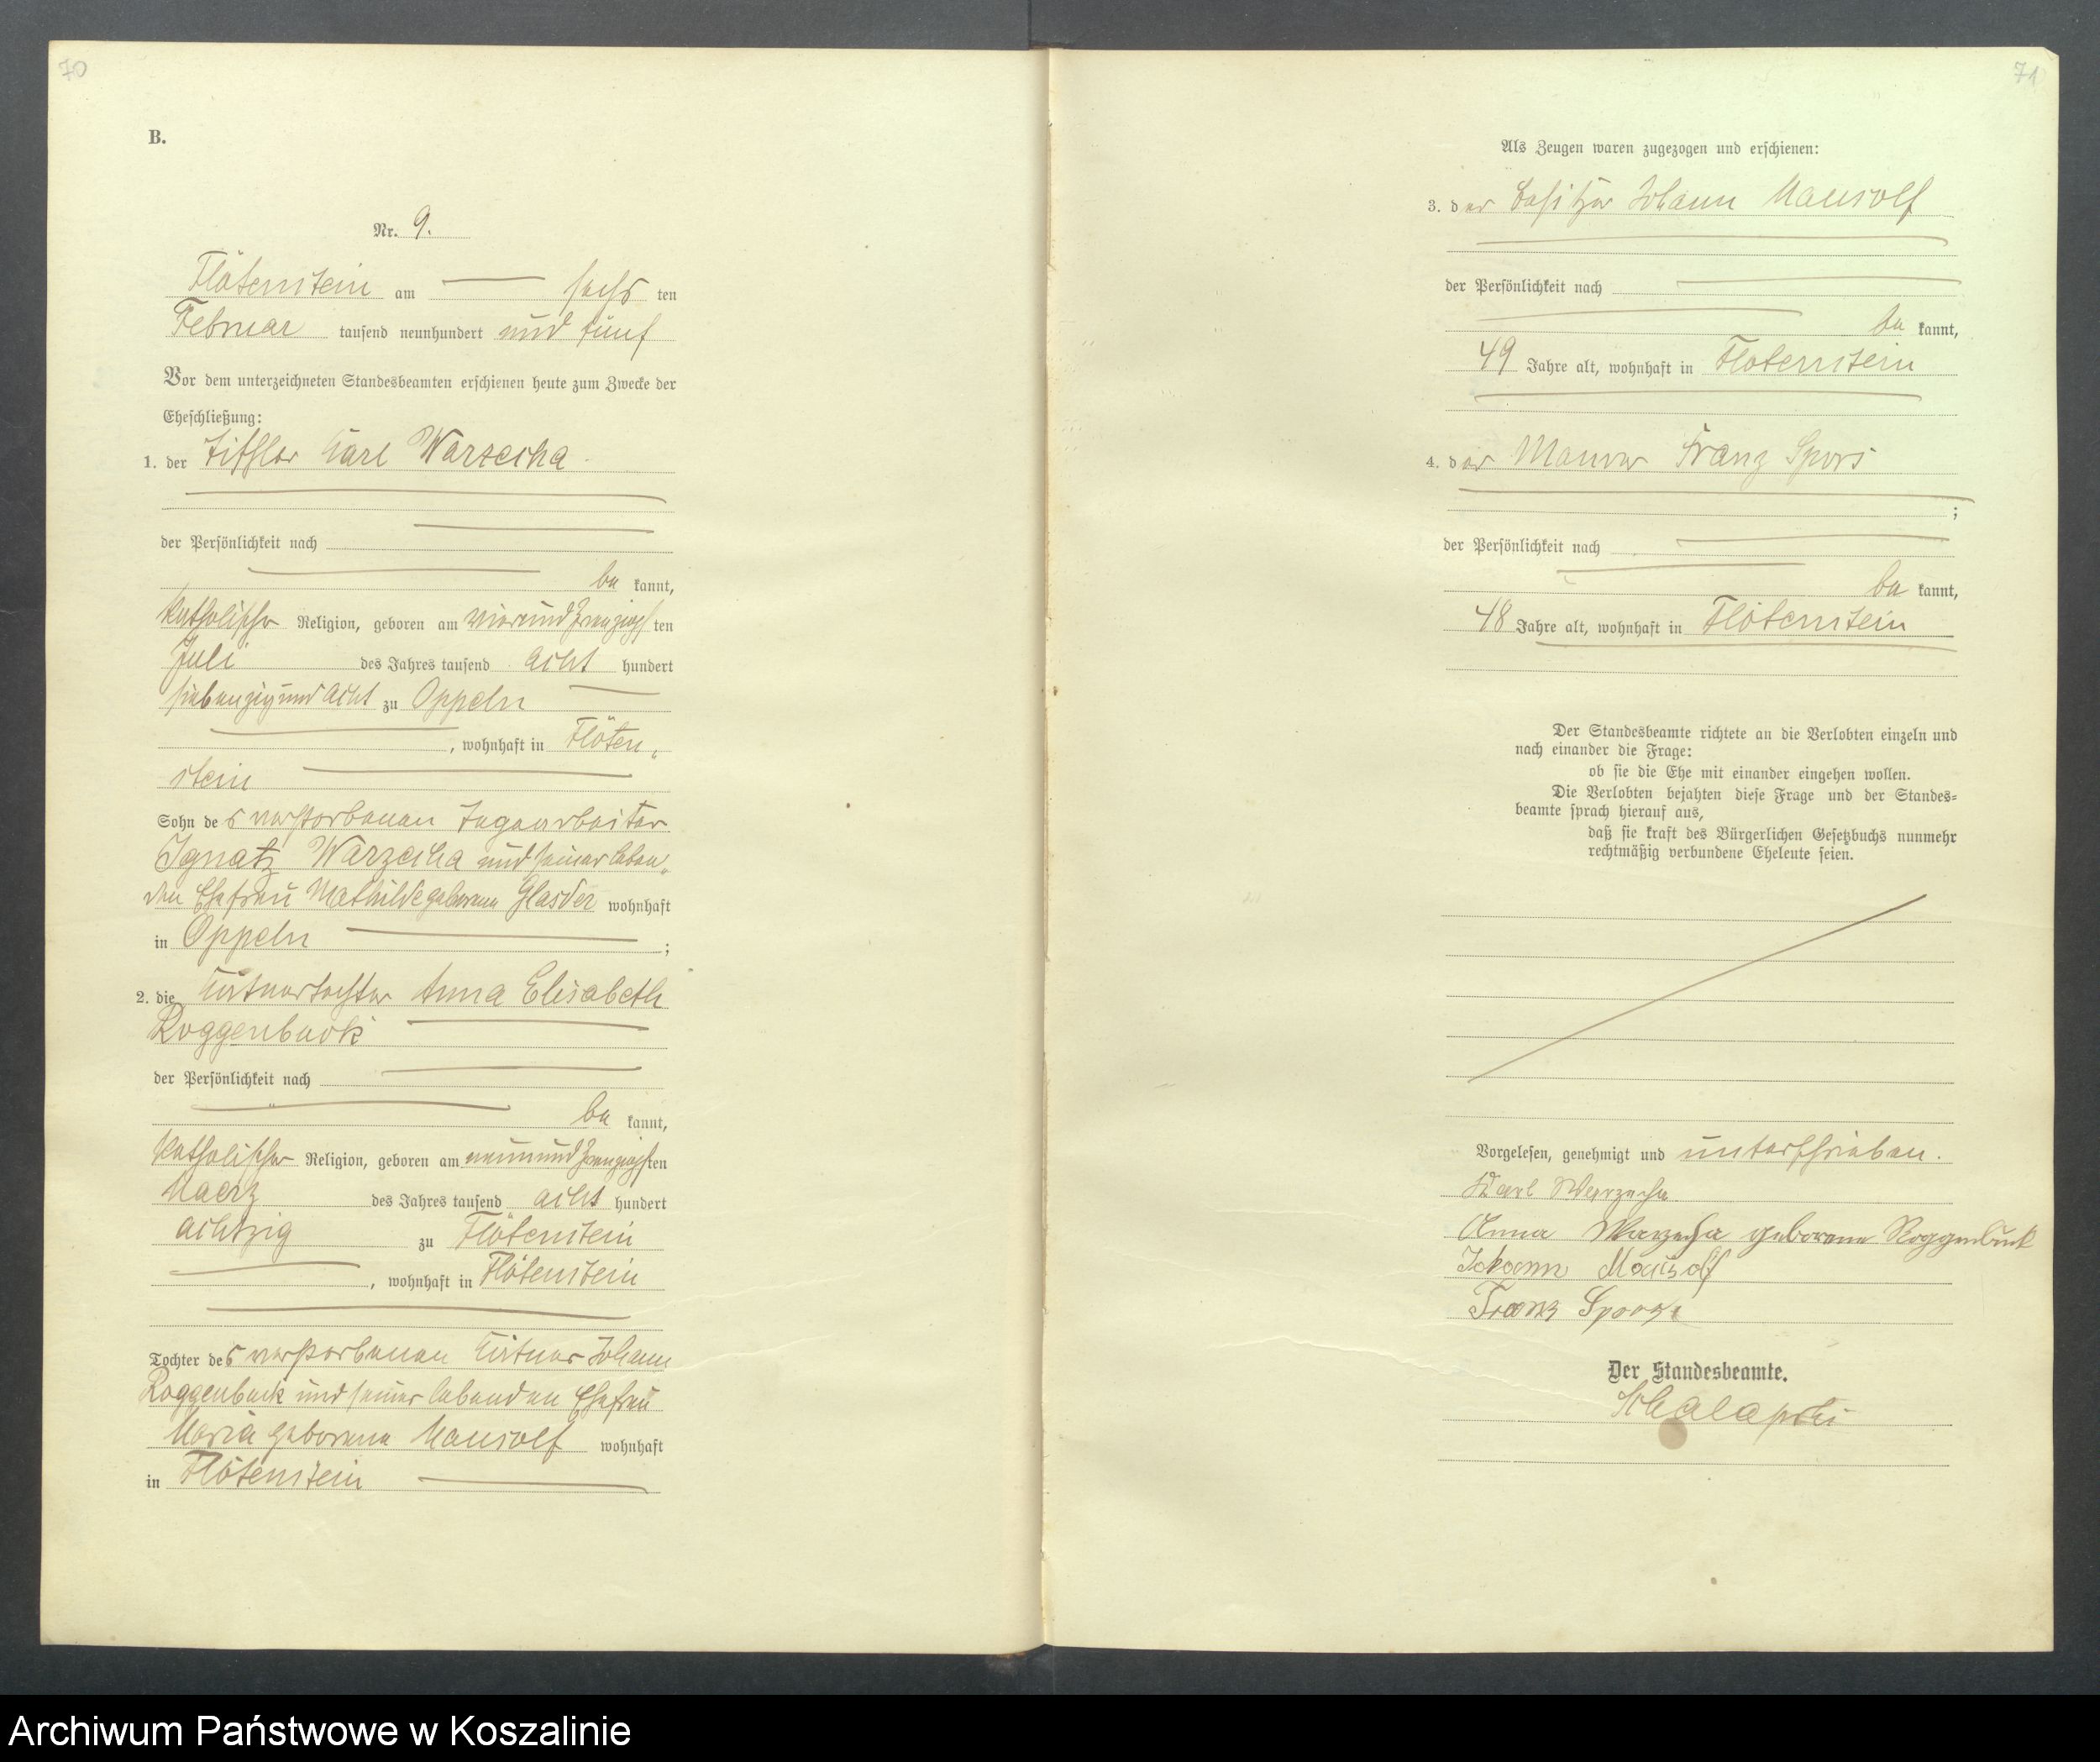 70
B.
Nr. 9.
Flötenstein am sechs ten
Februar tausend neunhundert und fünf
Vor dem unterzeichneten Standesbeamten erschienen heute zum Zwecke der
Eheschließung:
1. der Tischler Karl Warzecha
der Persönlichkeit nach
be kannt,
katholischer Religion, geboren am vierundzwanzigs ten
Juli des Jahres tausend acht hundert
siebenzig und acht zu Oppeln
, wohnhaft in Flöten„
stein
Sohn des verstorbenen Tagearbeiter
Ignatz Warzecha und seiner leben„
den Ehefrau Mathilde geborenen wohnhaft
in Oppeln ;
2. die Kätnertochter Anna Elisabeth
Roggenbuck
der Persönlichkeit nach
be kannt,
katholischer Religion, geboren am neunundzwanzigsten
Maerz des Jahres tausend acht hundert
achtzig zu Flötenstein
, wohnhaft in Flötenstein
Tochter des verstorbenen Kätner Johann
Roggenbuck und seiner lebenden Ehefrau
Maria geborene Mausolf wohnhaft
in Flötenstein
71
Als Zeugen waren zugezogen und erschienen:
3. der Besitzer Johann Mausolf
der Persönlichkeit nach
be kannt,
49 Jahre alt, wohnhaft in Flötenstein
4. der Maurer Franz Spors
;
der Persönlichkeit nach
be kannt,
48 Jahre alt, wohnhaft in Flötenstein
Der Standesbeamte richtete an die Verlobten einzeln und
nach einander die Frage:
ob sie die Ehe mit einander eingehen wollen.
Die Verlobten bejahten diese Frage und der Standes=
beamte sprach hierauf aus,
daß sie kraft des Bürgerlichen Gesetzbuchs nunmehr
rechtmäßig verbundene Eheleute seien.
Vorgelesen, genehmigt und unterschrieben.
Karl Warzecha
Anna Warzecha geborene Roggenbuck
Johann Mausolf
Franz Spors
Der Standesbeamte.
Archiwum Państwowe w Koszalinie